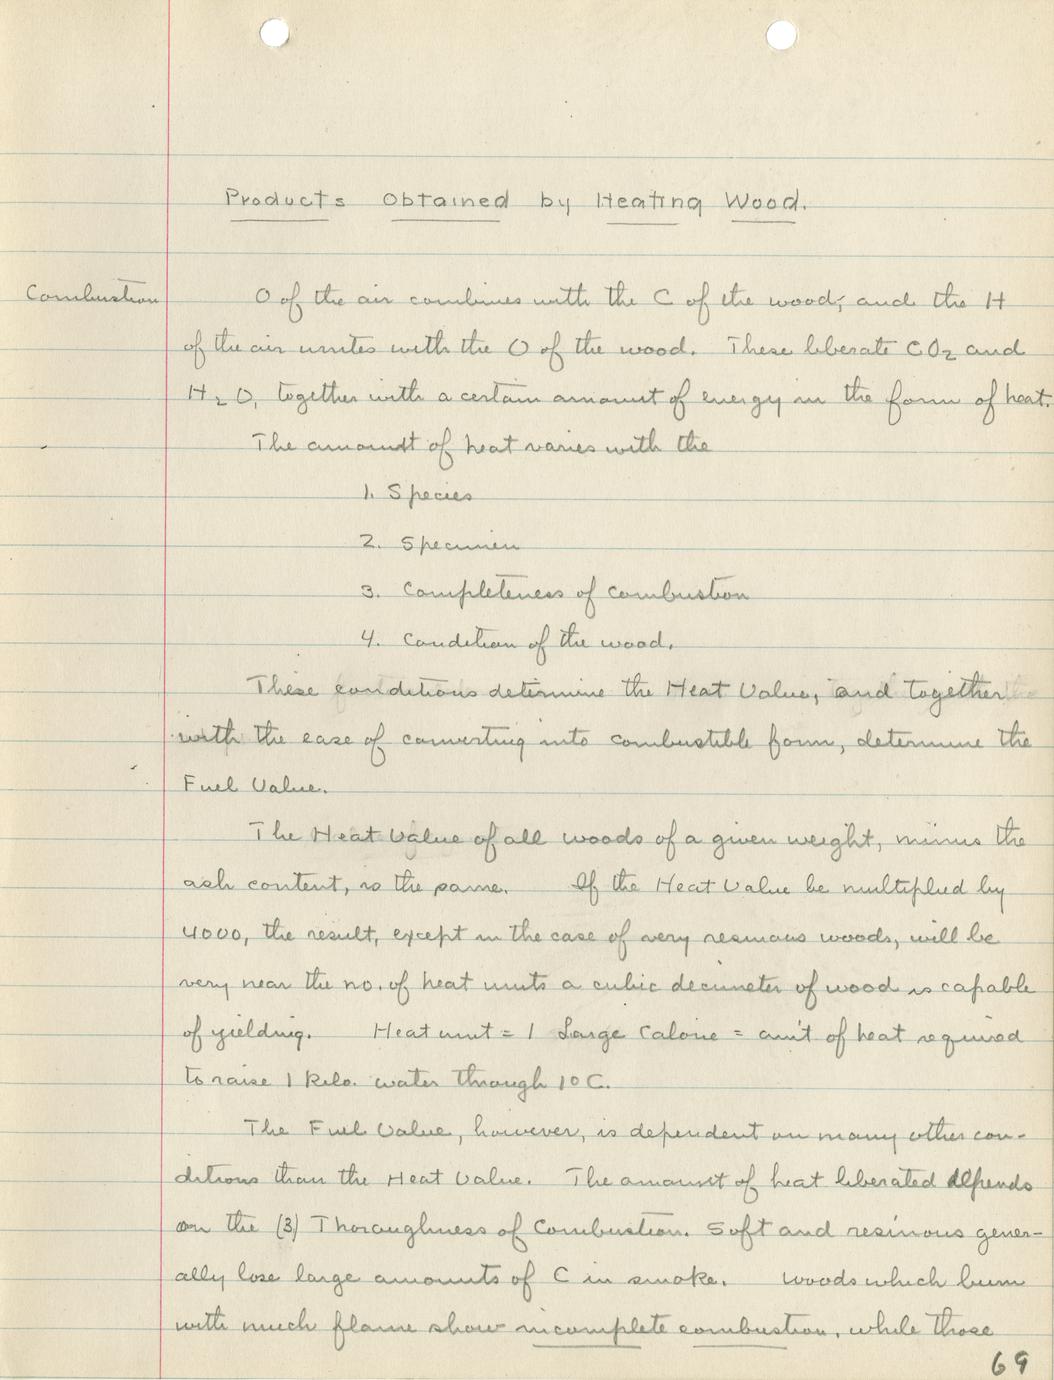 Products Obtained by Heating Wood.
Combustion
O of the air combines with the C of the wood, and the H
of the air unites with the O of the wood. These liberate CO2 and
H2O, together with a certain amount of energy in the form of heat.
The amount of heat varies with the
1. Species
2. Specimen
3. Completeness of combustion
4. Condition of the wood.
These conditions determine the Heat Value, and together
with the ease of converting into combustible form, determine the
Fuel Value.
The Heat Value of all woods of a given weight, minus the
ash content, is the same. If the Heat Value be multiplied by
4000, the result, except in the case of very resinous woods, will be
very near the no. of heat units a cubic decimeter of wood is capable
of yielding. Heat unit = 1 Large Calorie = am't of heat required
to raise 1 Kilo. water through 1° C.
The Fuel Value, however, is dependent on many other con-
ditions than the Heat Value. The amount of heat liberated depends
on the (3) Thoroughness of Combustion. Soft and resinous gener-
ally lose large amounts of C in smoke. Woods which burn
with much flame show incomplete combustion, while those
69